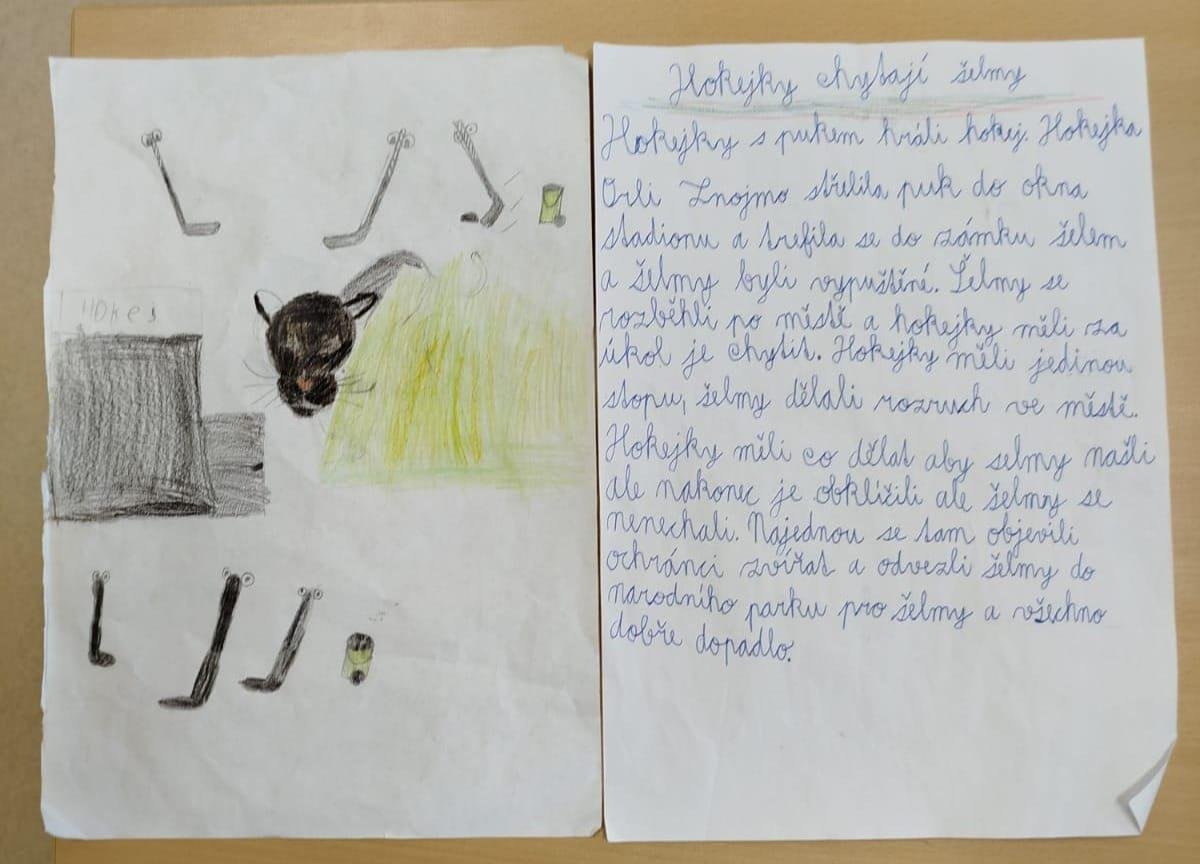 Hokej
Hokejky chytají šelmy
Hokejky s pukem hráli hokej. Hokejka
Orli Znojmo střelila puk do okna
stadionu a trefila se do zámku šelem
a šelmy byli vypuštěné. Šelmy se
rozběhli po městě a hokejky měli za
úkol je chytit. Hokejky měli jedinou
stopu, šelmy dělali rozruch ve městě.
Hokejky měli co dělat aby selmy našli
ale nakonec je obklížili ale šelmy se
nenechali. Najednou se tam objevili
ochránci zvířat a odvezli šelmy do
narodního parku pro šelmy a všechno
dobře dopadlo.